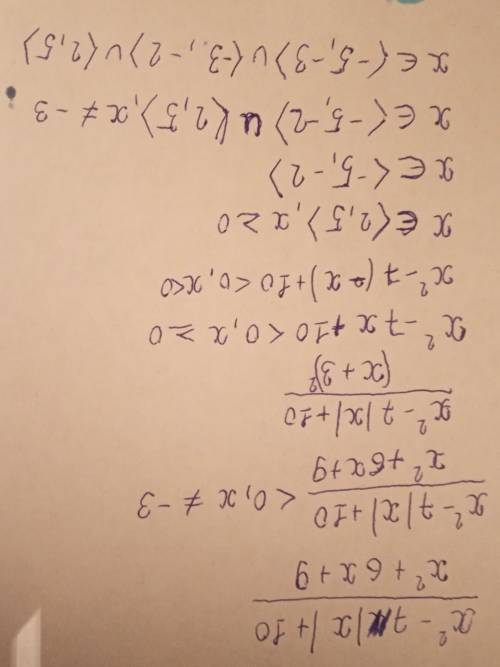 x² - 7|x|+10
x² + 6x+9
x² - 7|x|+10
x² +6x+9
<0, x ≠ -3
x² - 7|x|+10
(x + 3)²
x² -7x +10 <0, x ≥0
x² -7 (-x)+10 <0, x<0
x ∈⟨2,5⟩, x ≥0
x ∈ ⟨-5,-2⟩
x ∈ ⟨-5,-2⟩ ∪ ⟨2,5⟩, x ≠ -3
x ∈ ⟨-5,-3⟩ ∪ ⟨-3, -2⟩ ∪ ⟨2,5⟩